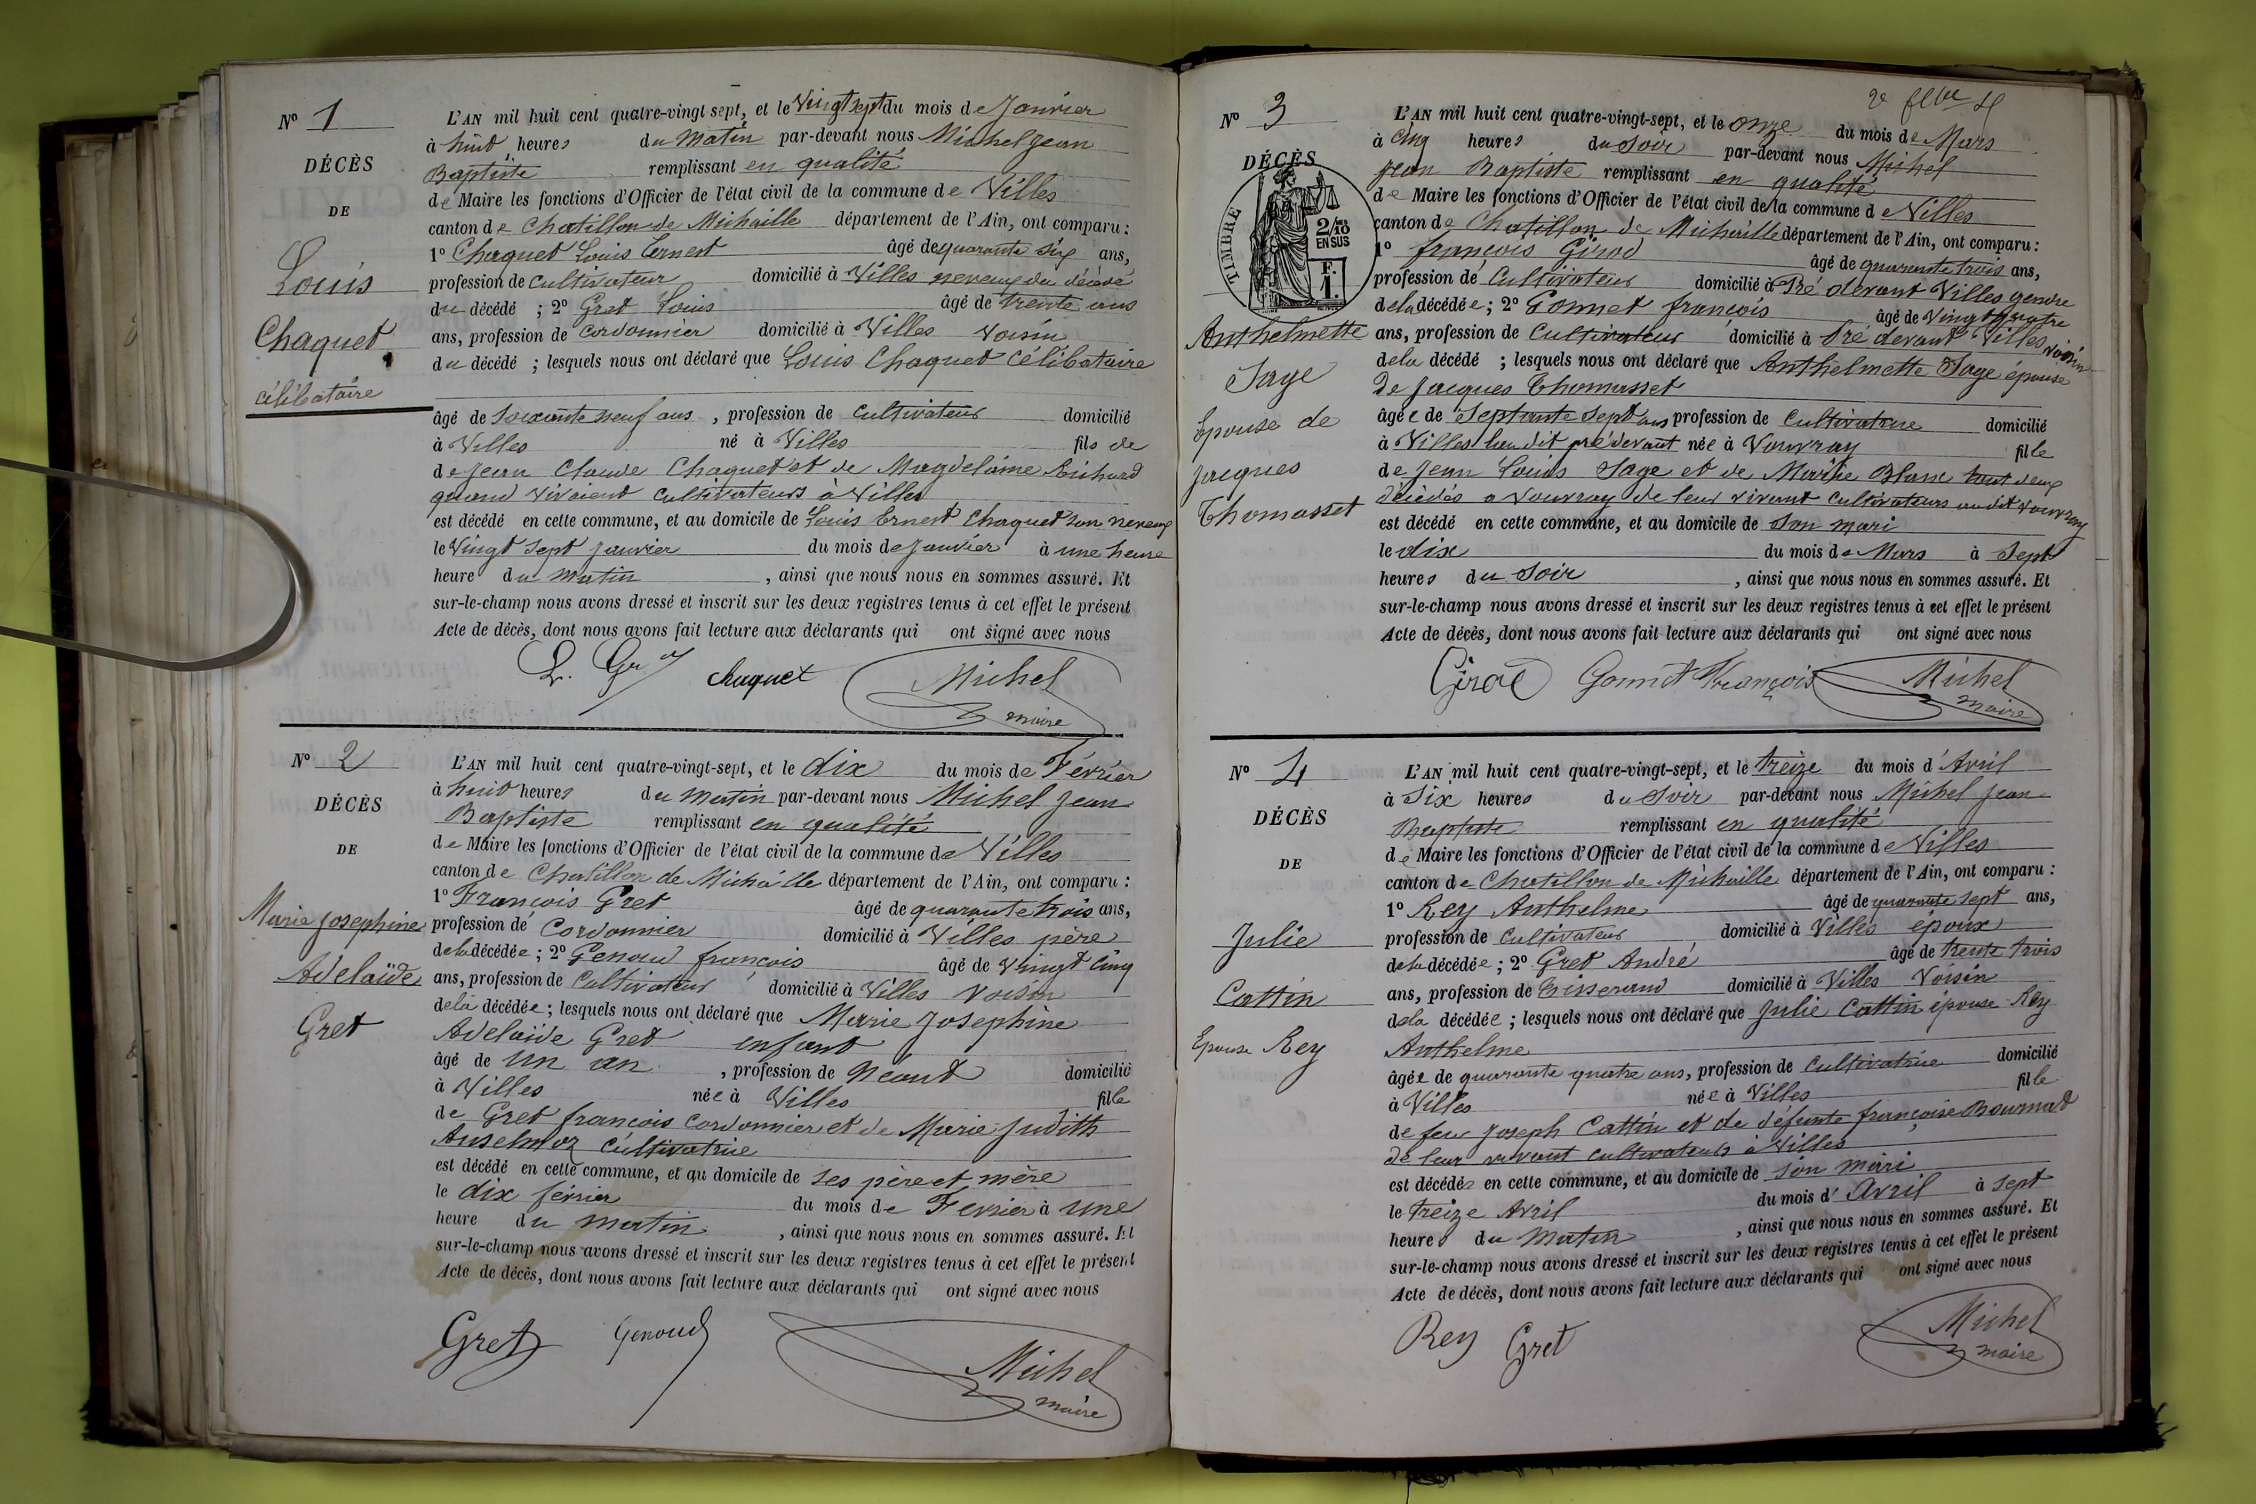 Nº 1
DÉCÈS
DE
Louis
Chaquet
célibataire
L'AN mil huit cent quatre-vingt sept, et le Vingt sept du mois de Janvier
à huit heures du matin par-devant nous Michel Jean
Baptiste remplissant en qualité
de Maire les fonctions d'Officier de l'état civil de la commune de Villes
canton de Chatillon de Michaille département de l'Ain, ont comparu :
1º Chaquet Louis Ernest âgé de quarante six ans,
profession de cultivateur domicilié à Villes neveux du décédé
du décédé ; 2º Gret Louis âgé de trente ans
ans, profession de cordonnier domicilié à Villes voisin
du décédé ; lesquels nous ont déclaré que Louis Chaquet célibataire
âgé de soixante neuf ans , profession de cultivateur domicilié
à Villes né à Villes fils de
de Jean Claude Chaquet et de Magdelaine Richard
quand vivaient cultivateurs à Villes
est décédé en cette commune, et au domicile de Louis Ernest Chaquet son neveux
le Vingt sept Janvier du mois de Janvier à une heure
heure du matin , ainsi que nous nous en sommes assuré. Et
sur-le-champ nous avons dressé et inscrit sur les deux registres tenus à cet effet le présent
Acte de décès, dont nous avons fait lecture aux déclarants qui ont signé avec nous
chaquet Michel
maire
Nº 2
DÉCÈS
DE
Marie Josephine
Adelaïde
Gret
L'AN mil huit cent quatre-vingt-sept, et le dix du mois de Février
à huit heures du matin par-devant nous Michel Jean
Baptiste remplissant en qualité
de Maire les fonctions d'Officier de l'état civil de la commune de Villes
canton de Chatillon de Michaille département de l'Ain, ont comparu :
1º François Gret âgé de quarante trois ans,
profession de cordonnier domicilié à Villes père
de la décédée ; 2º Genoud françois âgé de vingt cinq
ans, profession de Cultivateur domicilié à Villes voisin
de la décédée ; lesquels nous ont déclaré que Marie Josephine
Adelaïde Gret enfant
âgé de un an , profession de Néant domicilié
à Villes née à Villes fille
de Gret françois cordonnier et de Marie Judith
Anselmoz cultivatrice
est décédé en cette commune, et au domicile de ses père et mère
le dix février du mois de Fevrier à une
heure du matin , ainsi que nous nous en sommes assuré. Et
sur-le-champ nous avons dressé et inscrit sur les deux registres tenus à cet effet le présent
Acte de décès, dont nous avons fait lecture aux déclarants qui ont signé avec nous
Gret Genoud Michel
maire
Nº 3
DÉCÈS
TIMBRE
2/10
EN SUS
F.
1.
Anthelmette
Sage
Epouse de
Jacques
Thomasset
L'AN mil huit cent quatre-vingt-sept, et le onze du mois de Mars
à cinq heures du soir par-devant nous Michel
Jean Baptiste remplissant en qualité
de Maire les fonctions d'Officier de l'état civil de la commune de Villes
canton de Chatillon de Michaille département de l'Ain, ont comparu :
1º françois Girod âgé de quarante trois ans,
profession de Cultivateur domicilié à Pré devant Villes gendre
de la décédée ; 2º Gonnet françois âgé de Vingt quatre
ans, profession de Cultivateur domicilié à Pré devant Villes voisin
de la décédé ; lesquels nous ont déclaré que Anthelmette Sage épouse
de Jacques Thomasset
âgée de Septante sept ans profession de cultivatrice domicilié
à Villes lieu dit pré devant née à Vouvray fille
de Jean Louis Sage et de Marie Blanc tout deux
décédés a Vouvray de leur vivant cultivateurs au dit Vouvray
est décédé en cette commune, et au domicile de son mari
le dix du mois de Mars à Sept
heures du Soir , ainsi que nous nous en sommes assuré. Et
sur-le-champ nous avons dressé et inscrit sur les deux registres tenus à cet effet le présent
Acte de décès, dont nous avons fait lecture aux déclarants qui ont signé avec nous
Girod Gonnet François Michel
maire
Nº 4
DÉCÈS
DE
Julie
Cattin
Epouse Rey
L'AN mil huit cent quatre-vingt-sept, et le treize du mois d'Avril
à Six heures du Soir par-devant nous Michel Jean
Baptiste remplissant en qualité
de Maire les fonctions d'Officier de l'état civil de la commune de Villes
canton de Chatillon de Michaille département de l'Ain, ont comparu :
1º Rey Anthelme âgé de quarante sept ans,
profession de Cultivateur domicilié à Villes époux
de la décédée ; 2º Gret André âgé de trente trois
ans, profession de tisserand domicilié à Villes Voisin
de la décédée ; lesquels nous ont déclaré que Julie Cattin épouse Rey
Anthelme
âgée de quarante quatre ans, profession de cultivatrice domicilié
à Villes née à Villes fille
de feu Joseph Cattin et de défunte françoise Bournat
de leur vivant cultivateurs à Villes
est décédée en cette commune, et au domicile de son mari
le treize Avril du mois d'Avril à sept
heures du Matin , ainsi que nous nous en sommes assuré. Et
sur-le-champ nous avons dressé et inscrit sur les deux registres tenus à cet effet le présent
Acte de décès, dont nous avons fait lecture aux déclarants qui ont signé avec nous
Rey Gret Michel
maire